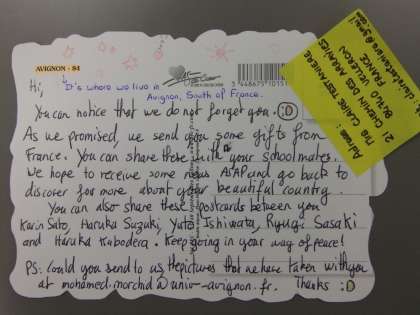 AVIGNON - 84
Hi,
It's where we live in
Avignon, South of France.
You can notice that we do not forget you. :D
As we promised, we send you some gifts from
France. You can share these with your schoolmates.
We hope to receive some news ASAP and go back to
discover far more about your beautiful country.
You can also share these postcards between you
Karin Sato, Haruka Suzuki, Yuto Ishiwata, Ryugi Sasaki
and Haruka Kubodera. Keep going in your way of peace!
PS: Could you send to us the pictures that we have taken with you
at mohamed.morchid@univ-avignon.fr. Thanks :D
Adresse:
Mlle CLAIRE TESTANIERE
21 CHEMIN DOS ARBONIES
84740 VELLERON
FRANCE